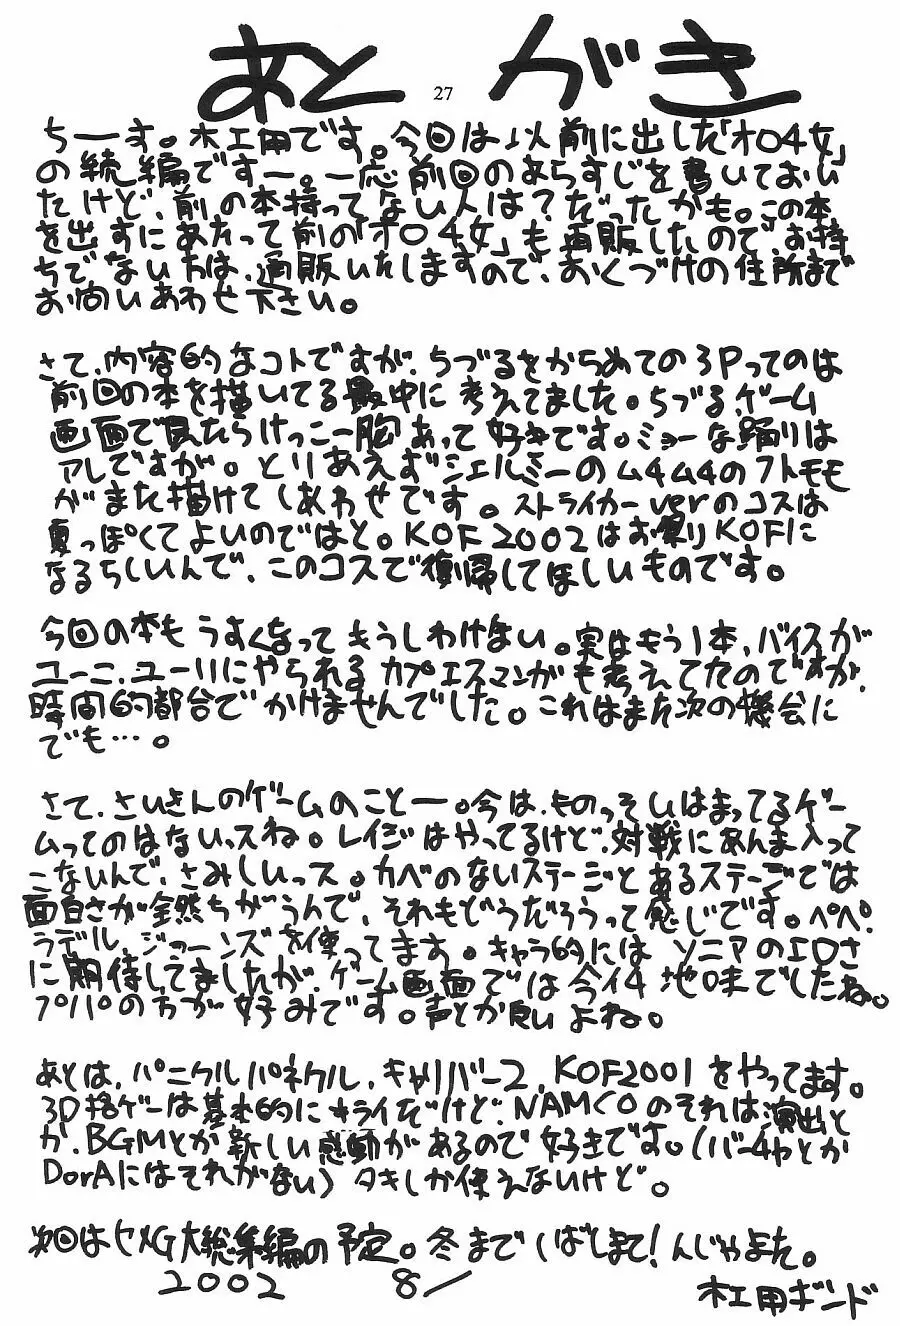 あとがき
27
ちーす。木工用です。今回は以前に出した「オロチ女」
の続編ですー。一応前回のあらすじを書いておい
たけど、前の本持ってない人は？だったかも。この本
を出すにあたって前の「オロチ女」も再販したので、お持
ちでない方は、通販いたしますので、おくづけの住所まで
お問いあわせ下さい。
さて、内容的なコトですが、ちづるをからめての3Pってのは
前回の本を描いてる最中に考えてました。ちづる、ゲーム
画面で見たらけっこー胸あって好きです。ミョーな踊りは
アレですが。とりあえずシェルミーのムチムチのフトモモ
がまた描けてしあわせです。ストライカーverのコスは
夏っぽくてよいのではと。KOF2002はお祭りKOFに
なるらしいんで、このコスで復帰してほしいものです。
今回の本もうすくなってもうしわけない。実はもう1本、バイスが
ユーニ、ユーリにやられるカプエスマンガも考えてたのですが、
時間的都合でかけませんでした。これはまた次の機会に
でも…。
さて、さいきんのゲームのことー。今は、ものっそいはまってるゲー
ムってのはないっスね。レイジはやってるけど、対戦にあんま入って
こないんで、さみしいっス。カベのないステージとあるステージでは
面白さが全然ちがうんで、それもどうだろうって感じです。ペペ、
ラデル、ジョーンズを使ってます。キャラ的にはソニアのエロさ
に期待してましたが、ゲーム画面では今イチ地味でしたね。
プリパの方が好みです。声とか良いよね。
あとは、パニクルパネクル、キャリバー2、KOF2001をやってます。
3D格ゲーは基本的にキライだけど、NAMCOのそれは演出と
か、BGMとか新しい感動があるので好きです。(バーチャとか
DorAにはそれがない)タキしか使えないけど。
次回はヒメG大総集編の予定。冬までしばしまて！んじゃまた。
2002 8/
木工用ボンド